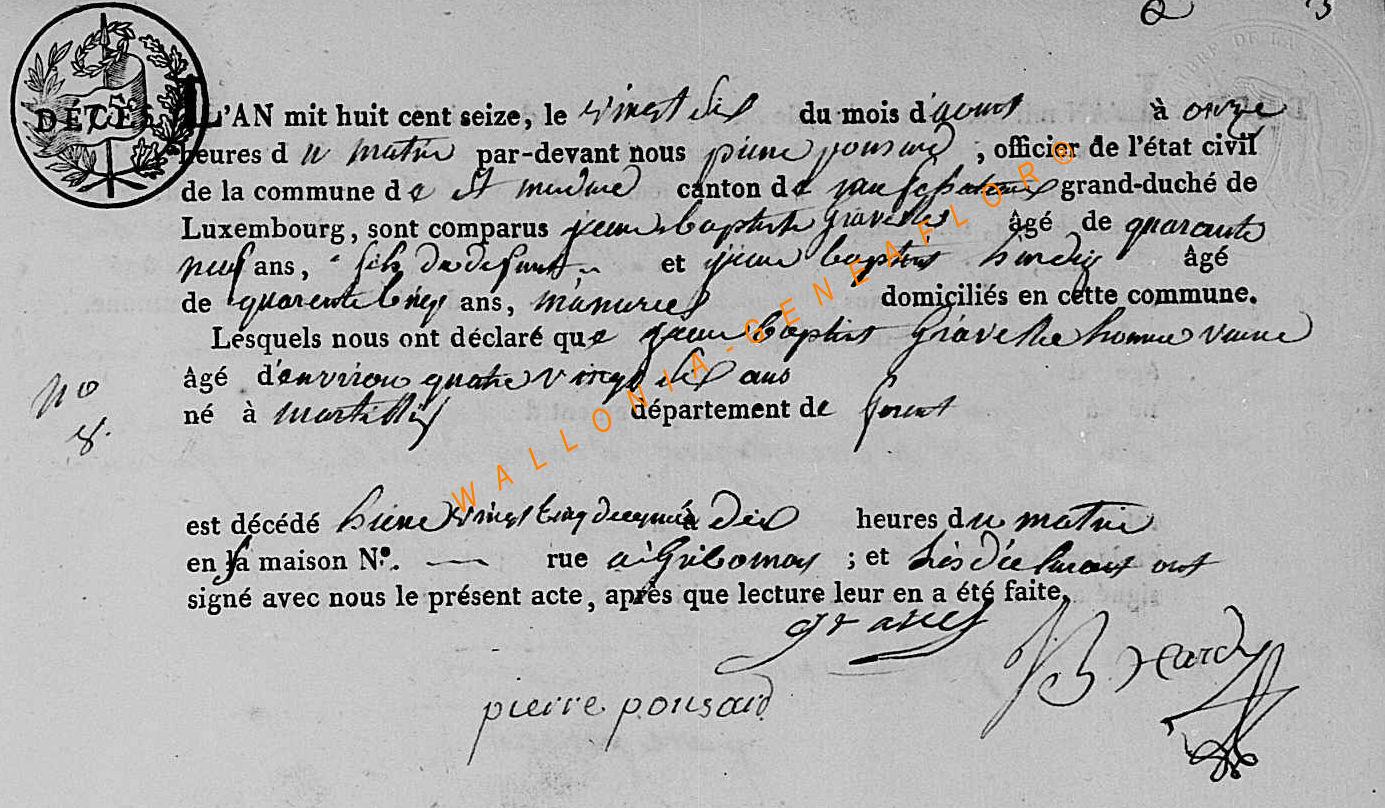 2 3
DÉCÈS. 75 L'AN mit huit cent seize, le vingt six du mois d'aoust à onze
heures du matin par-devant nous pierre ponsard, officier de l'état civil
de la commune de st medard canton de grand-duché de
Luxembourg, sont comparus jean baptiste Gravelle âgé de quarante
neuf ans, fils du defunt et jean baptist hardy âgé
de quarente cinq ans, domiciliés en cette commune.
Lesquels nous ont déclaré que jean baptist Gravelle homme
âgé d'environ quatre vingt ans
né à martilly département de foret
no
8.
est décédé hiere vingt cinq à dix heures du matin
en sa maison N°. — rue a Gribomont ; et les déclarant ont
signé avec nous le présent acte, après que lecture leur en a été faite.
JB Hardy
pierre ponsard
WALLONIA-GENEAFLOR®